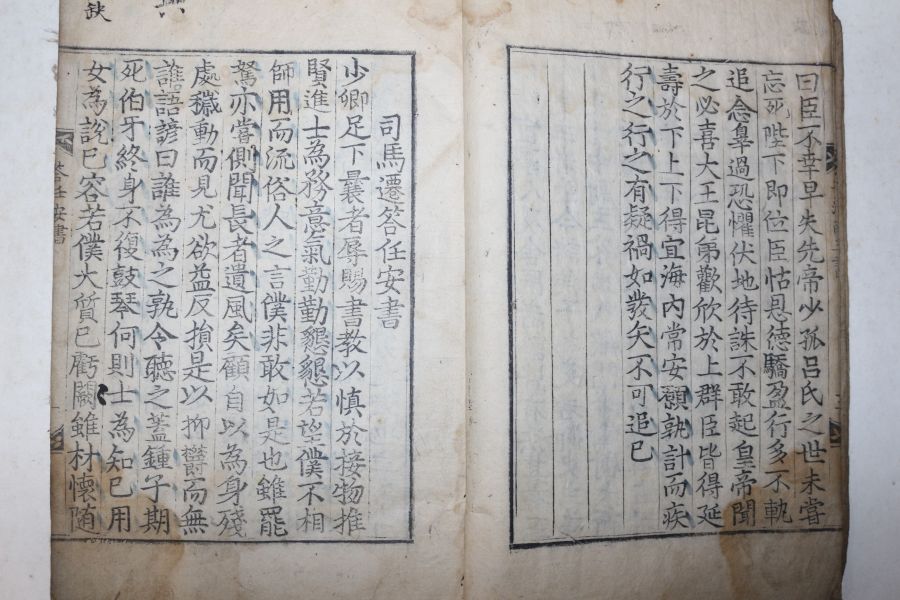 曰臣不幸早失先帝少孤呂氏之世未嘗
忘死陛下即位臣怙恩德驕盈行多不軌
追念辠過恐懼伏地待誅不敢起皇帝聞
之必喜大王昆弟歡欣於上群臣皆得延
壽於下上下得宜海內常安願孰計而疾
行之行之有疑禍如發矢不可追已
司馬遷答任安書
少卿足下曩者辱賜書教以慎於接物推
賢進士為務意氣勤勤懇懇若望僕不相
師用而流俗人之言僕非敢如是也雖罷
駑亦嘗側聞長者遺風矣顧自以為身殘
處穢動而見尤欲益反損是以抑欝而無
誰語諺曰誰為為之孰令聽之蓋鍾子期
死伯牙終身不復鼓琴何則士為知已用
女為說已容若僕大質已虧闕雖材懷随
答任安書
缺